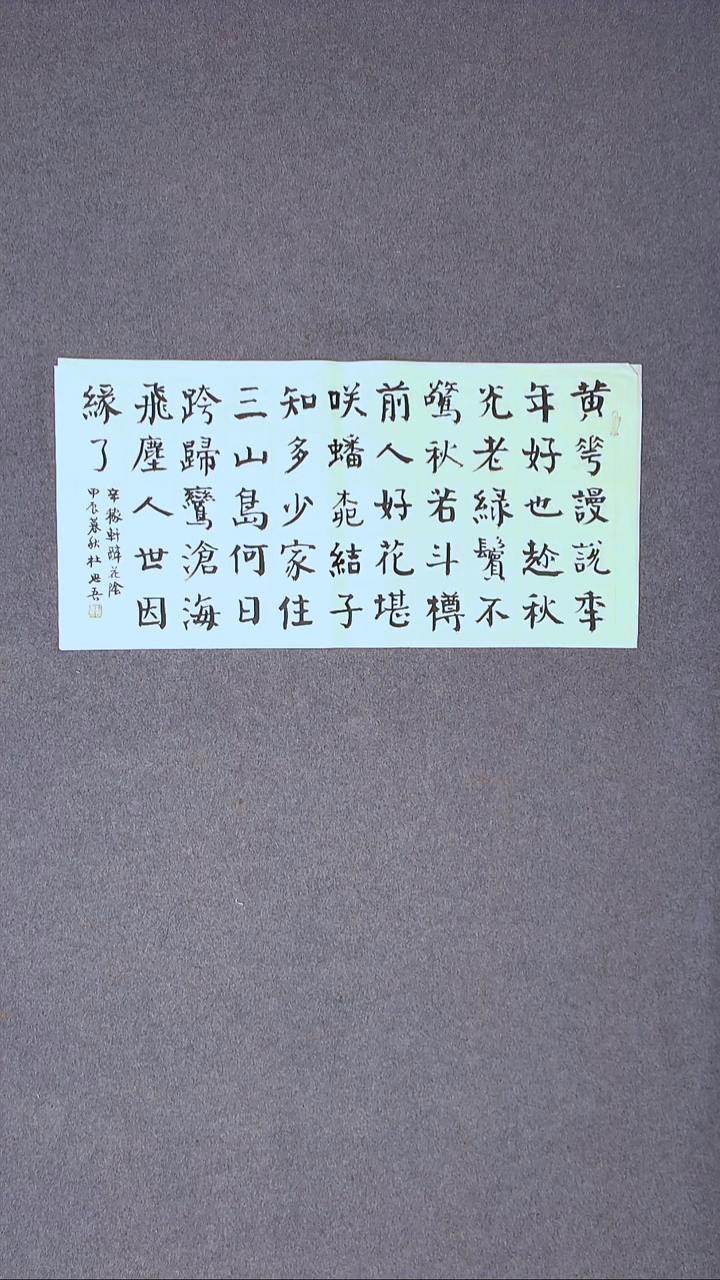 黄華謾說秊
年好也趂秋
光老緑鬢不
驚秋若斗樽
前人好花堪
咲蟠桃結子
知多少家住
三山島何日
跨歸鸞滄海
飛塵人世因
緣了
辛稼軒醉花陰
甲辰暮秋杜思吾